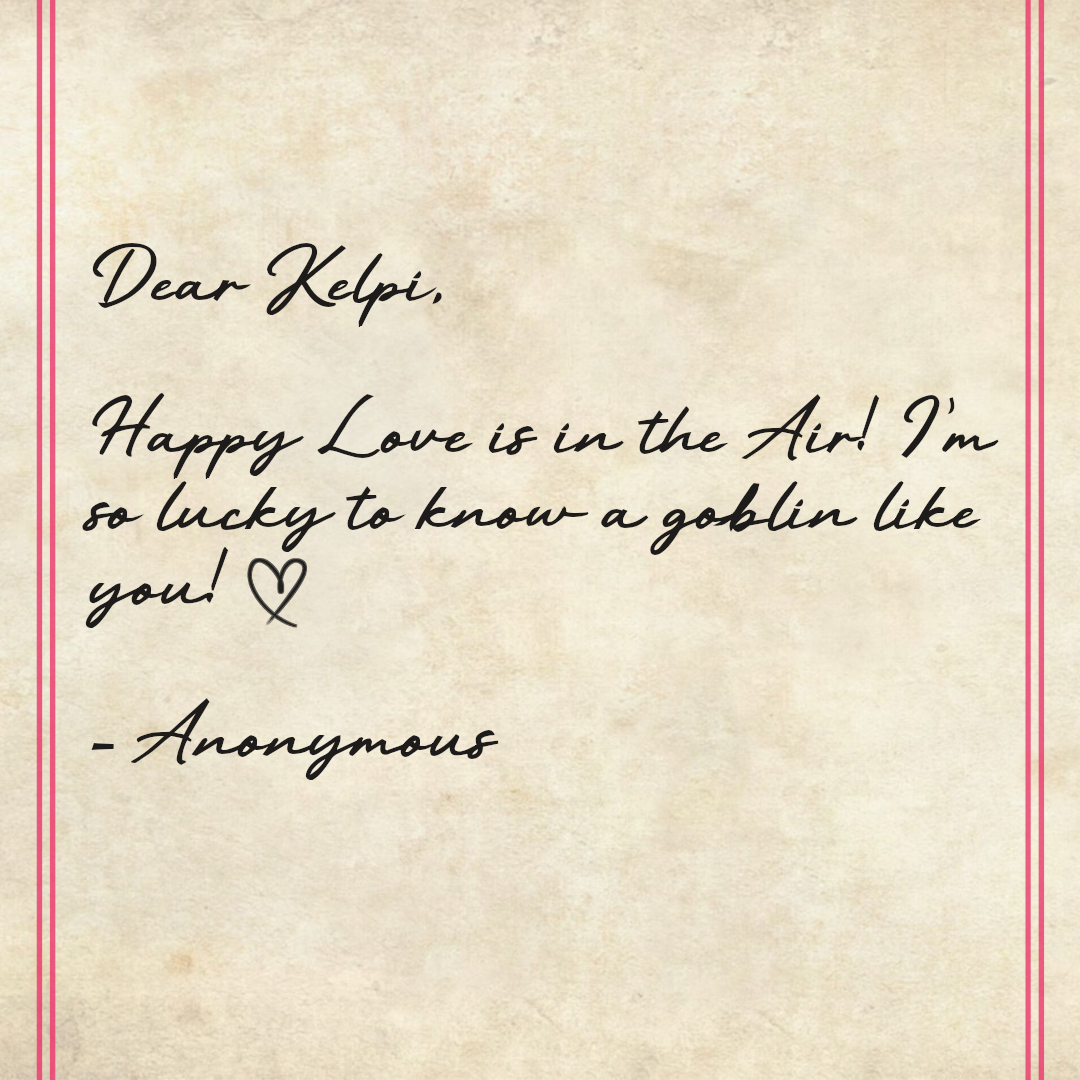 Dear Kelpi,
Happy Love is in the Air! I'm
so lucky to know a goblin like
you! ♡
- Anonymous